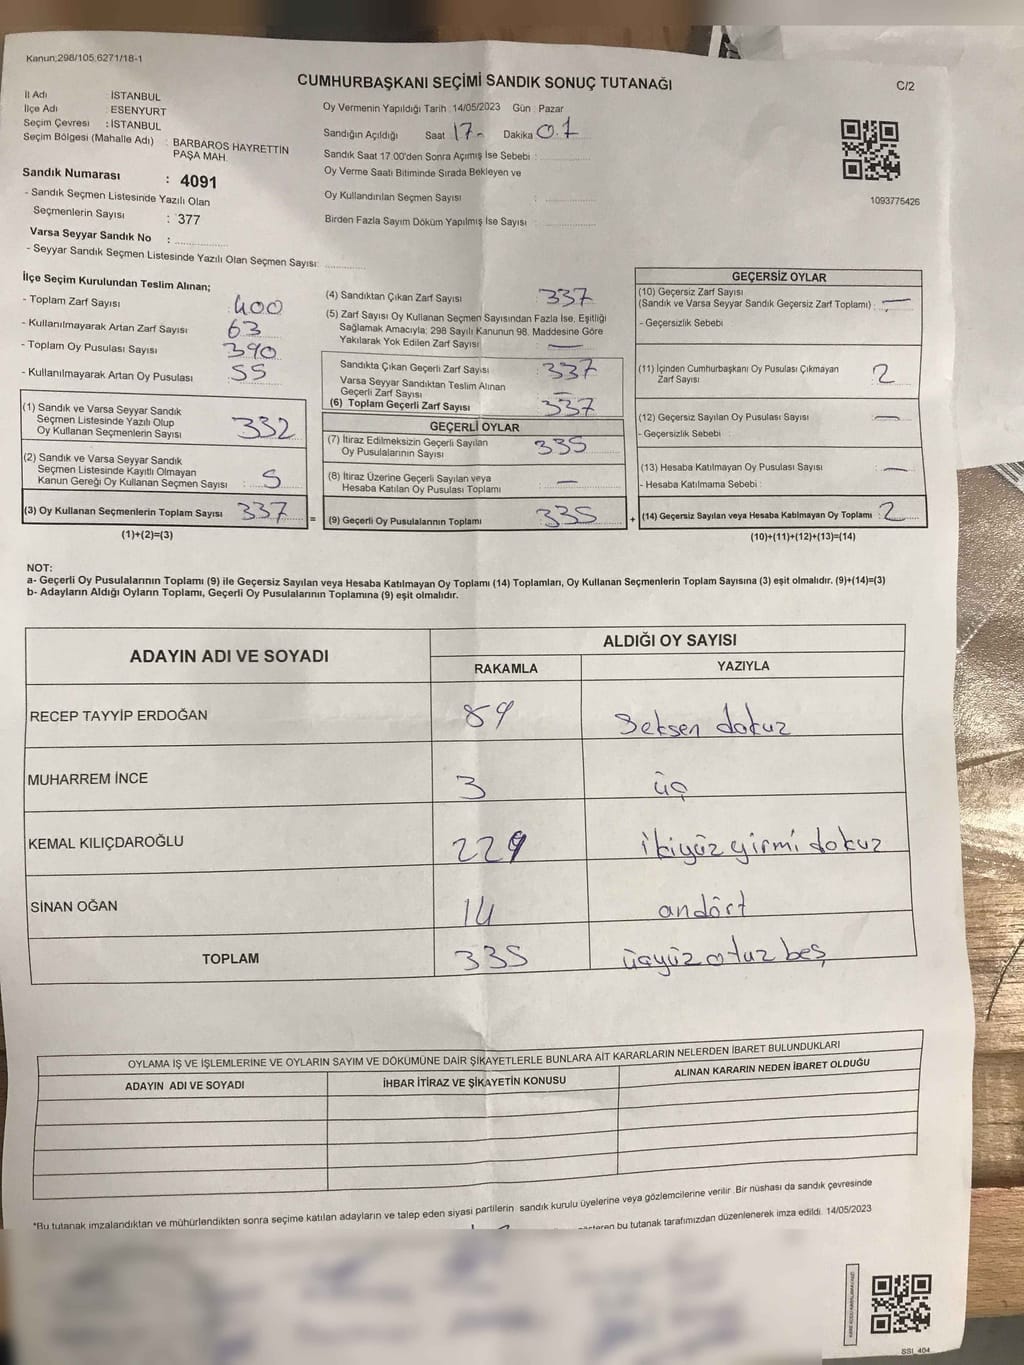 Kanun:298/105,6271/18-1
CUMHURBAŞKANI SEÇİMİ SANDIK SONUÇ TUTANAĞI
C/2
İl Adı : İSTANBUL
İlçe Adı : ESENYURT
Seçim Çevresi : İSTANBUL
Seçim Bölgesi (Mahalle Adı) : BARBAROS HAYRETTİN
PAŞA MAH.
Sandık Numarası : 4091
- Sandık Seçmen Listesinde Yazılı Olan
Seçmenlerin Sayısı : 377
Varsa Seyyar Sandık No :
- Seyyar Sandık Seçmen Listesinde Yazılı Olan Seçmen Sayısı:
Oy Vermenin Yapıldığı Tarih : 14/05/2023 Gün : Pazar
Sandığın Açıldığı Saat 17- Dakika 0.1
Sandık Saat 17.00'den Sonra Açımış İse Sebebi :
Oy Verme Saati Bitiminde Sırada Bekleyen ve
Oy Kullandırılan Seçmen Sayısı :
Birden Fazla Sayım Döküm Yapılmış İse Sayısı :
1093775426
İlçe Seçim Kurulundan Teslim Alınan;
- Toplam Zarf Sayısı : 400
- Kullanılmayarak Artan Zarf Sayısı : 63
- Toplam Oy Pusulası Sayısı : 390
- Kullanılmayarak Artan Oy Pusulası : 55
(1) Sandık ve Varsa Seyyar Sandık
Seçmen Listesinde Yazılı Olup
Oy Kullanan Seçmenlerin Sayısı : 332
(2) Sandık ve Varsa Seyyar Sandık
Seçmen Listesinde Kayıtlı Olmayan
Kanun Gereği Oy Kullanan Seçmen Sayısı : 5
(3) Oy Kullanan Seçmenlerin Toplam Sayısı : 337
(1)+(2)=(3)
(4) Sandıktan Çıkan Zarf Sayısı : 337
(5) Zarf Sayısı Oy Kullanan Seçmen Sayısından Fazla İse, Eşitliği
Sağlamak Amacıyla; 298 Sayılı Kanunun 98. Maddesine Göre
Yakılarak Yok Edilen Zarf Sayısı : —
Sandıkta Çıkan Geçerli Zarf Sayısı : 337
Varsa Seyyar Sandıktan Teslim Alınan
Geçerli Zarf Sayısı : —
(6) Toplam Geçerli Zarf Sayısı : 337
GEÇERLİ OYLAR
(7) İtiraz Edilmeksizin Geçerli Sayılan
Oy Pusulalarının Sayısı : 335
(8) İtiraz Üzerine Geçerli Sayılan veya
Hesaba Katılan Oy Pusulası Toplamı : —
= (9) Geçerli Oy Pusulalarının Toplamı : 335
GEÇERSİZ OYLAR
(10) Geçersiz Zarf Sayısı
(Sandık ve Varsa Seyyar Sandık Geçersiz Zarf Toplamı) : —
- Geçersizlik Sebebi :
(11) İçinden Cumhurbaşkanı Oy Pusulası Çıkmayan
Zarf Sayısı : 2
(12) Geçersiz Sayılan Oy Pusulası Sayısı : —
- Geçersizlik Sebebi :
(13) Hesaba Katılmayan Oy Pusulası Sayısı : —
- Hesaba Katılmama Sebebi :
+ (14) Geçersiz Sayılan veya Hesaba Katılmayan Oy Toplamı : 2
(10)+(11)+(12)+(13)=(14)
NOT:
a- Geçerli Oy Pusulalarının Toplamı (9) ile Geçersiz Sayılan veya Hesaba Katılmayan Oy Toplamı (14) Toplamları, Oy Kullanan Seçmenlerin Toplam Sayısına (3) eşit olmalıdır. (9)+(14)=(3)
b- Adayların Aldığı Oyların Toplamı, Geçerli Oy Pusulalarının Toplamına (9) eşit olmalıdır.
ADAYIN ADI VE SOYADI
ALDIĞI OY SAYISI
RAKAMLA YAZIYLA
RECEP TAYYİP ERDOĞAN 89 Seksen dokuz
MUHARREM İNCE 3 üç
KEMAL KILIÇDAROĞLU 229 ikiyüz yirmi dokuz
SİNAN OĞAN 14 ondört
TOPLAM 335 üçyüz otuz beş
OYLAMA İŞ VE İŞLEMLERİNE VE OYLARIN SAYIM VE DÖKÜMÜNE DAİR ŞİKAYETLERLE BUNLARA AİT KARARLARIN NELERDEN İBARET BULUNDUKLARI
ADAYIN ADI VE SOYADI İHBAR İTİRAZ VE ŞİKAYETİN KONUSU ALINAN KARARIN NEDEN İBARET OLDUĞU
*Bu tutanak imzalandıktan ve mühürlendikten sonra seçime katılan adayların ve talep eden siyasi partilerin sandık kurulu üyelerine veya gözlemcilerine verilir. Bir nüshası da sandık çevresinde
bu tutanak tarafımızdan düzenlenerek imza edildi. 14/05/2023
SSI_404